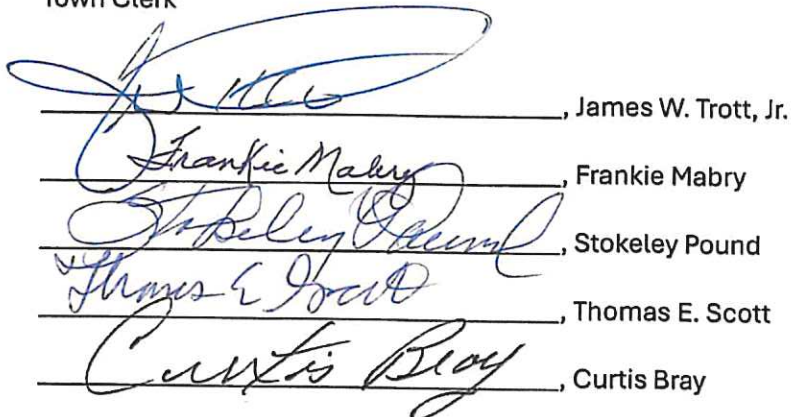 Town Clerk
, James W. Trott, Jr.
Frankie Mabry, Frankie Mabry
Stokeley Pound, Stokeley Pound
Thomas E Scott, Thomas E. Scott
Curtis Bray, Curtis Bray